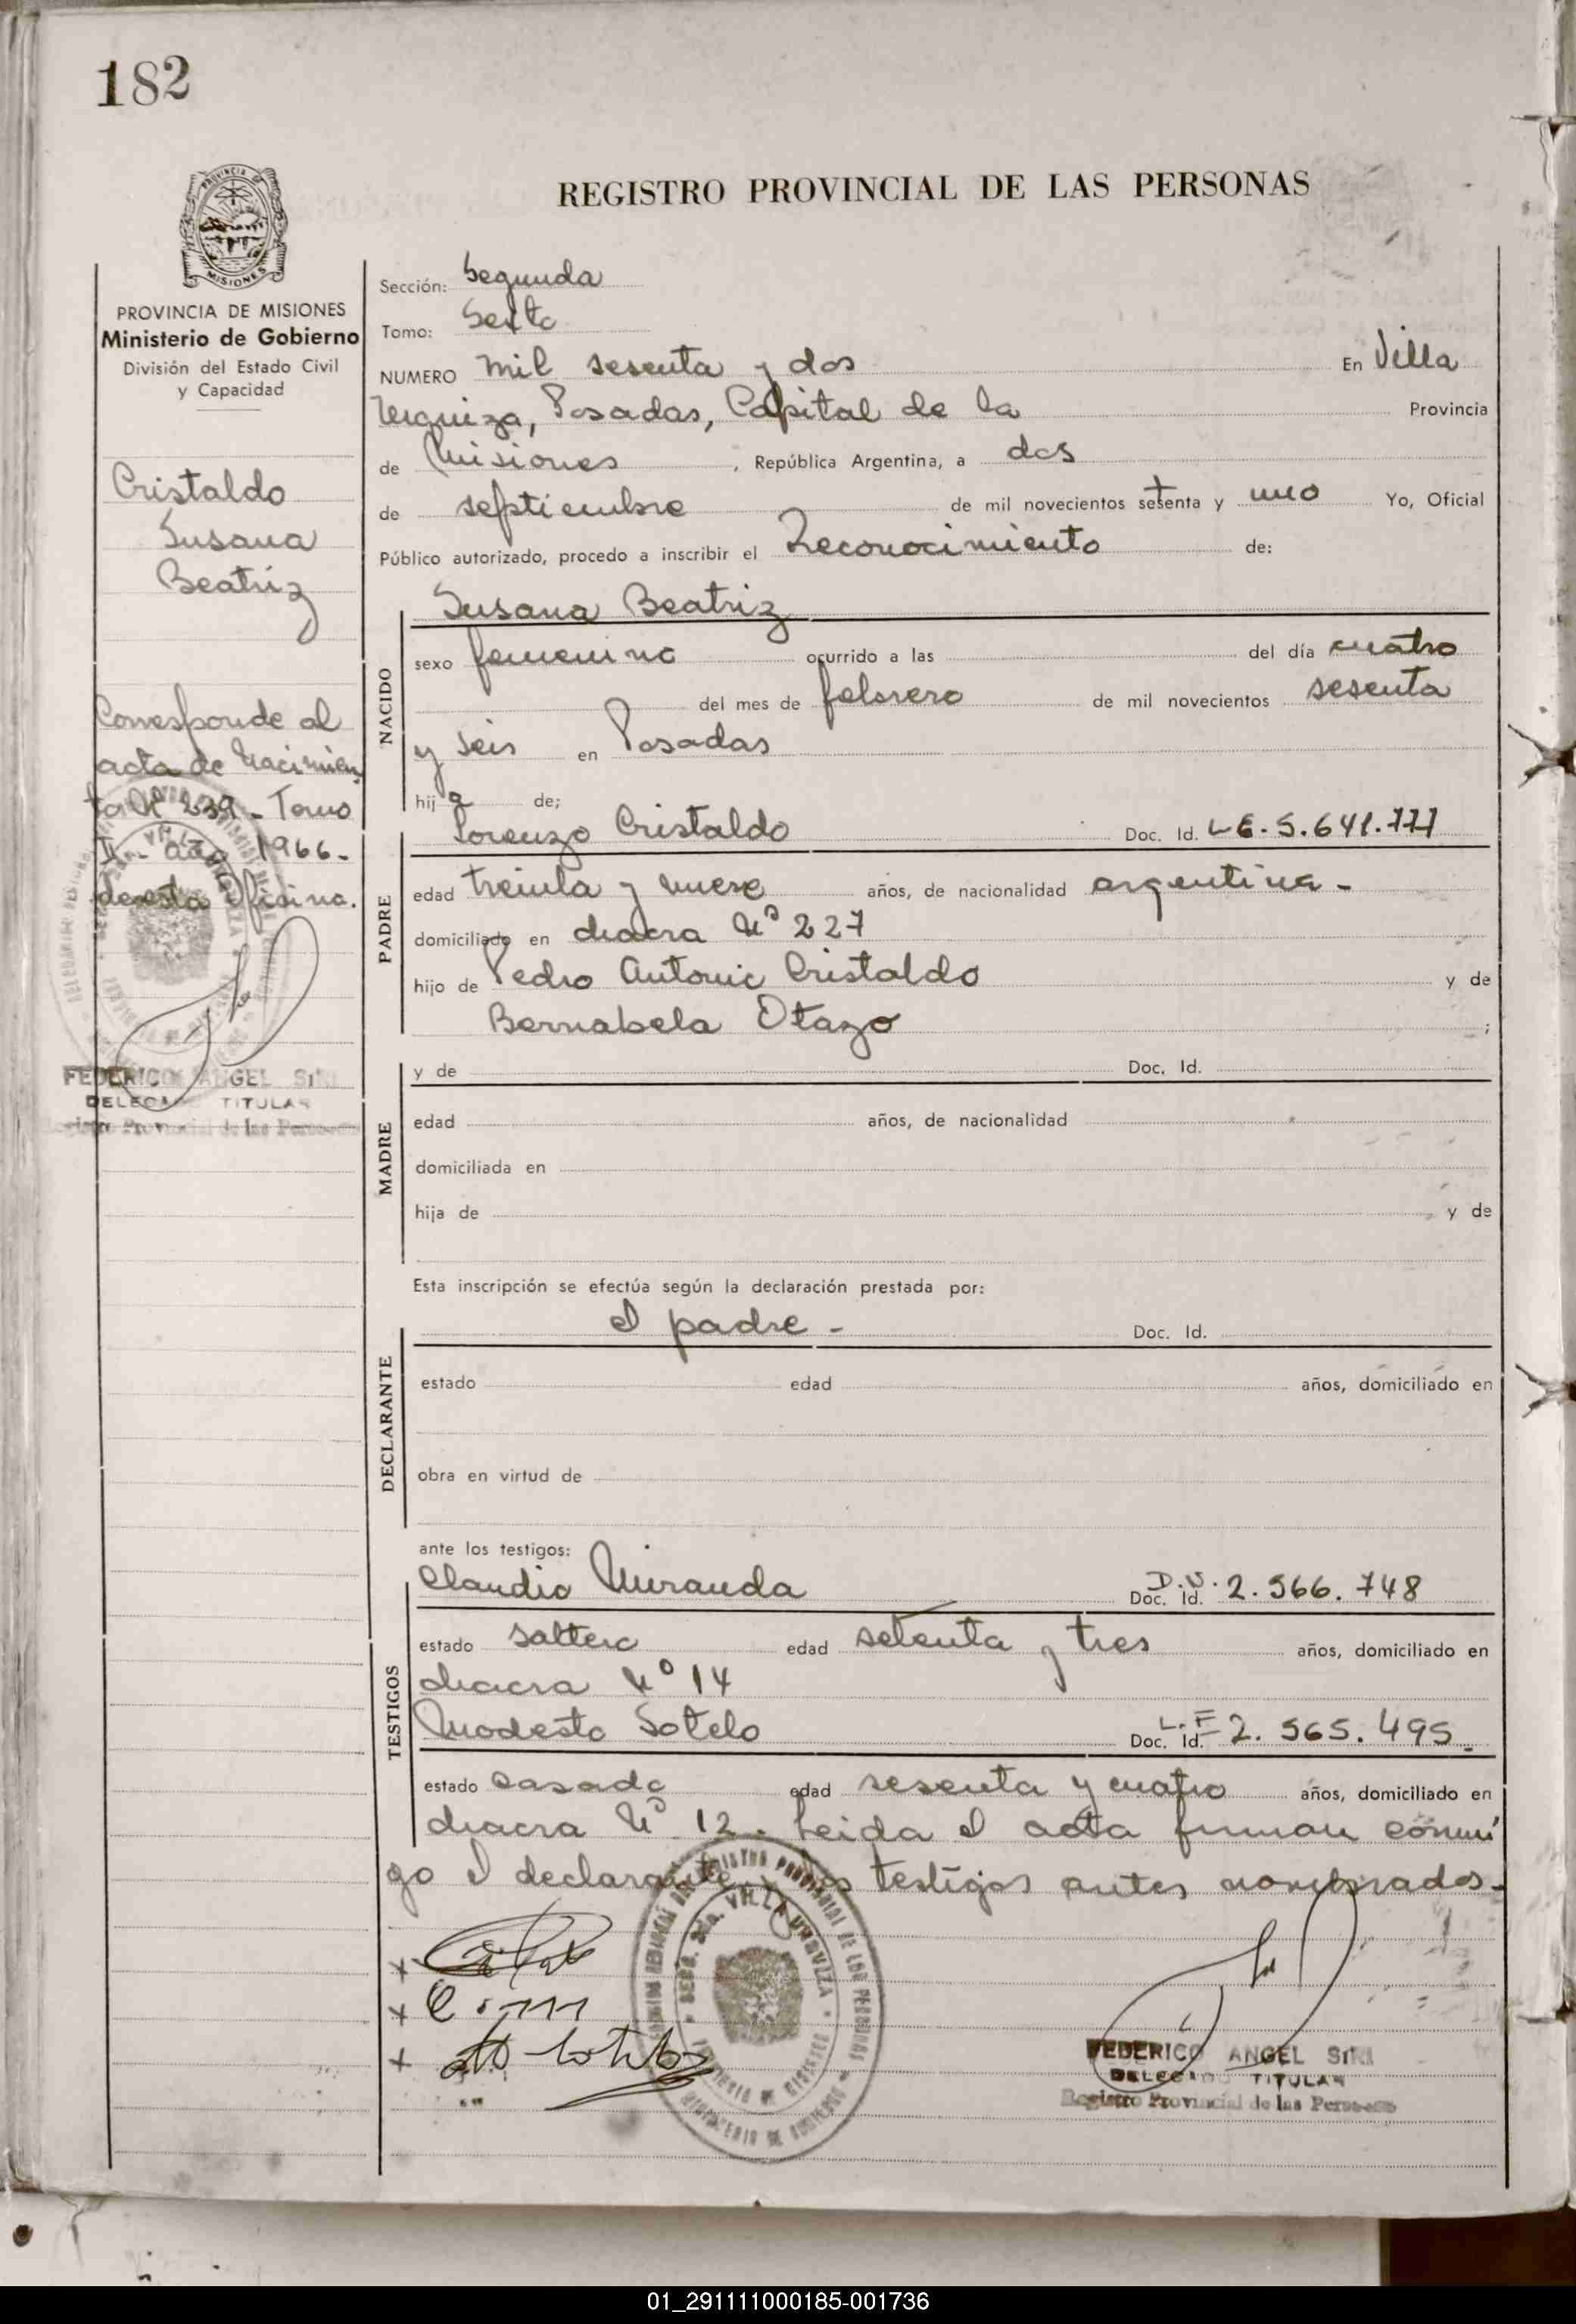 182
REGISTRO PROVINCIAL DE LAS PERSONAS
PROVINCIA DE
MISIONES
PROVINCIA DE MISIONES
Ministerio de Gobierno
División del Estado Civil
y Capacidad
Cristaldo
Susana
Beatriz
Corresponde al
acta de Nacimien
to Nº 239 - Tomo
II - año 1966 -
de esta Oficina.
FEDERICO ANGEL SIRI
DELEGADO TITULAR
Registro Provincial de las Personas
Sección: Segunda
Tomo: Sexto
NUMERO mil sesenta y dos En Villa
Urquiza, Posadas, Capital de la Provincia
de Misiones, República Argentina, a dos
de septiembre de mil novecientos setenta y uno Yo, Oficial
Público autorizado, procedo a inscribir el Reconocimiento de:
NACIDO
Susana Beatriz
sexo femenino ocurrido a las del día cuatro
del mes de febrero de mil novecientos sesenta
y seis en Posadas
hija de;
PADRE
Lorenzo Cristaldo Doc. Id. L E. 5.641.777
edad treinta y nueve años, de nacionalidad argentina -
domiciliado en chacra Nº 227
hijo de Pedro Antonio Cristaldo y de
Bernabela Otazo ;
MADRE
y de Doc. Id.
edad años, de nacionalidad
domiciliada en
hija de y de
Esta inscripción se efectúa según la declaración prestada por:
DECLARANTE
el padre - Doc. Id.
estado edad años, domiciliado en
obra en virtud de
ante los testigos:
TESTIGOS
Claudio Miranda Doc. Id. 2.566.748
estado soltero edad setenta y tres años, domiciliado en
chacra Nº 14
Modesto Sotelo Doc. Id. L.E 2.565.495.
estado casado edad sesenta y cuatro años, domiciliado en
chacra Nº 12. Leida el acta firman conmi
go el declarante y los testigos antes nombrados -
VILLA URQUIZA
FEDERICO ANGEL SIRI
DELEGADO TITULAR
Registro Provincial de las Personas
01_291111000185-001736